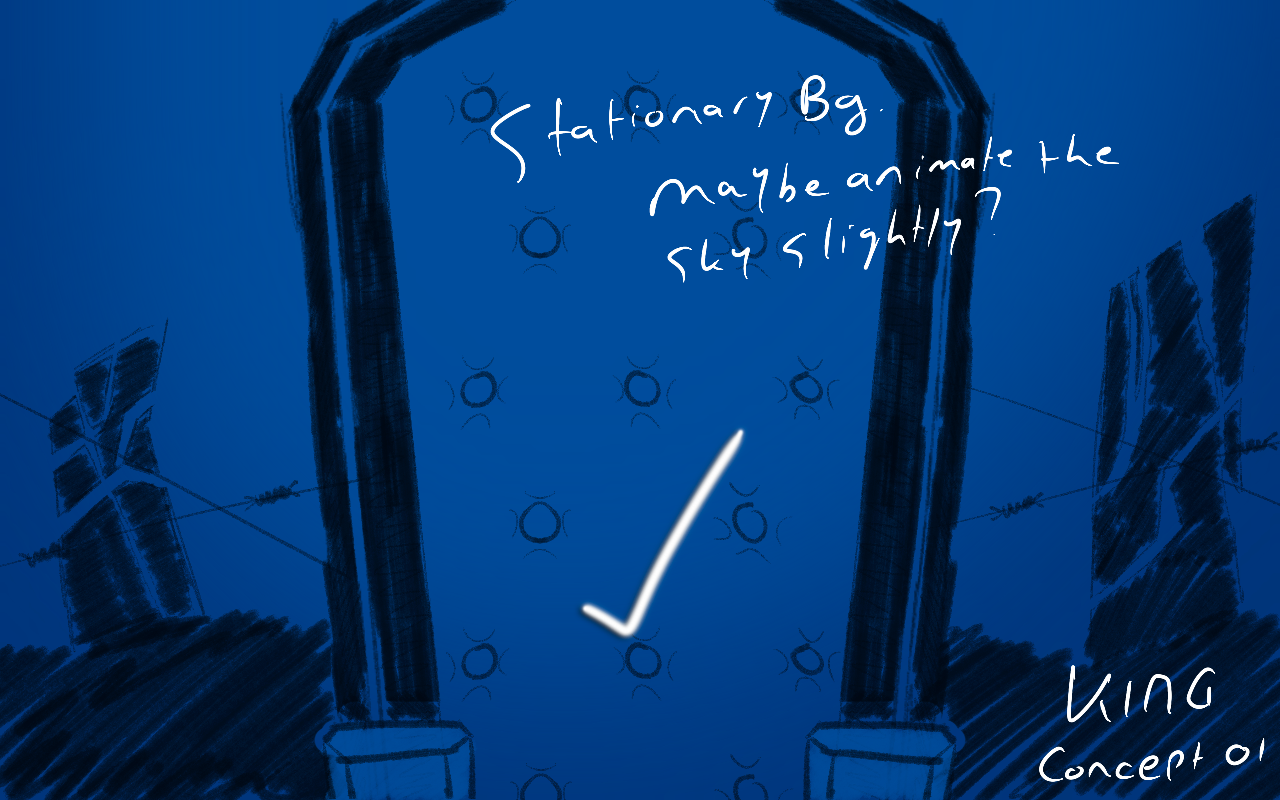 Stationary Bg.
maybe animate the
sky slightly?
KING
Concept 01